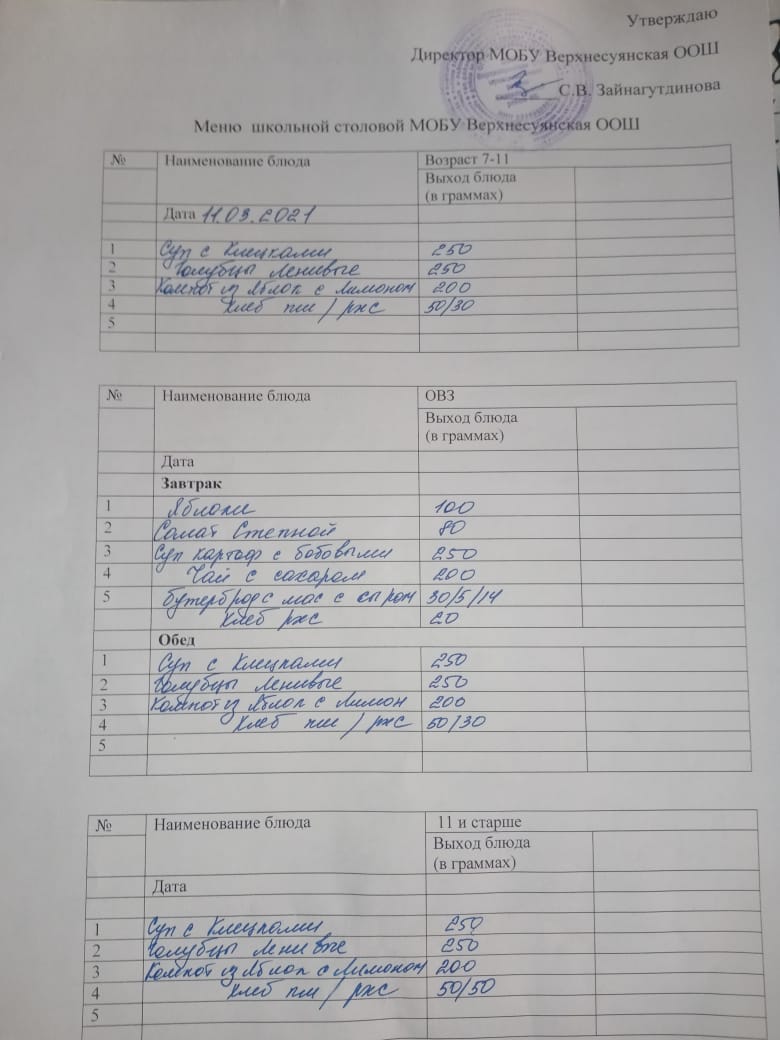 Утверждаю
Директор МОБУ Верхнесуянская ООШ
С.В. Зайнагутдинова
Меню школьной столовой МОБУ Верхнесуянская ООШ
№ Наименование блюда Возраст 7-11
Выход блюда
(в граммах)
Дата 11.03.2021
1 Суп с Клецками 250
2 Голубцы Ленивые 250
3 Компот из Яблок с Лимоном 200
4 Хлеб пш / рж 50/30
5
№ Наименование блюда ОВЗ
Выход блюда
(в граммах)
Дата
Завтрак
1 Яблоки 100
2 Салат Степной 80
3 Суп картоф с бобовыми 250
4 Чай с сахаром 200
5 Бутерброд с мас с сыром 30/5/14
Хлеб рж 20
Обед
1 Суп с Клецками 250
2 Голубцы Ленивые 250
3 Компот из Яблок с Лимон 200
4 Хлеб пш / рж 50/30
5
№ Наименование блюда 11 и старше
Выход блюда
(в граммах)
Дата
1 Суп с Клецками 250
2 Голубцы Ленивые 250
3 Компот из Яблок с Лимоном 200
4 Хлеб пш / рж 50/50
5